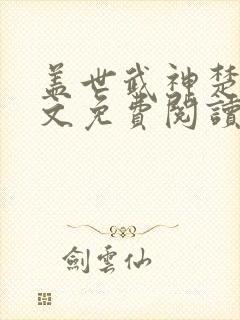 盖世武神楚
文免費閱讀
劍雲仙